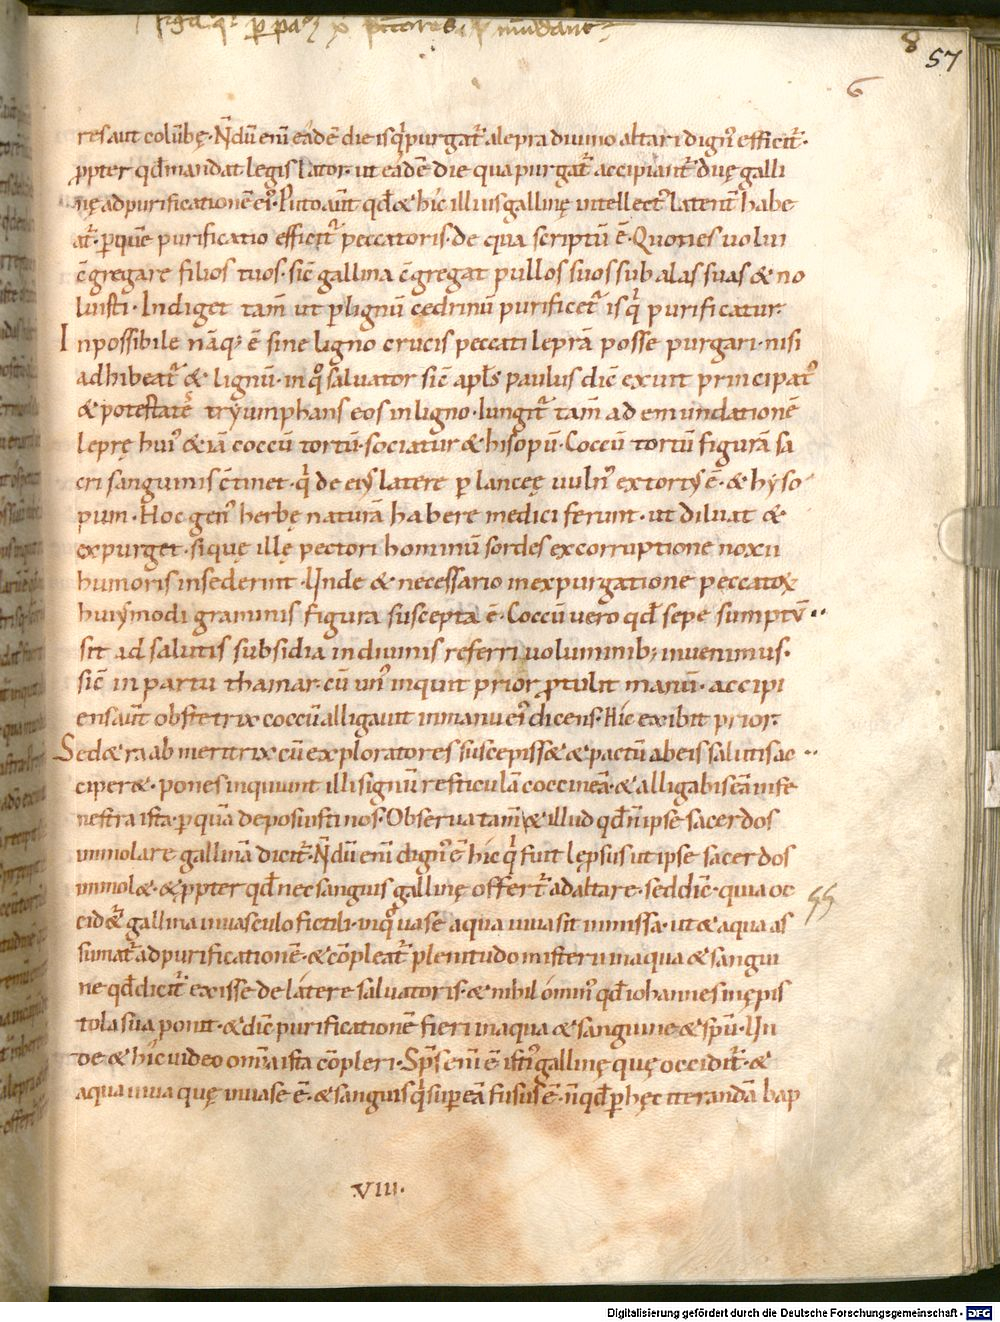 8
57
6
res aut colūbę· N̄dū enī eadē die is q̇ purgat̄ a lepra divino altari dign᾽ efficit̄·
ꝓpter qđ mandat legis lator· ut eadē die qua purgat̄ accipiant̄ duę galli
nę ad purificationē ei᾽· Puto aūt qđ & hic illius gallinę intellect᾽ latent̄ habe
at̄· ꝑ quē purificatio efficit̄ peccatoris· de qua scriptū ē· Quoties uolui
c̄gregare filios tuos· sic̄ gallina c̄gregat pullos suos sub alas suas & no
luisti· Indiget tam̄ ut ꝑ lignū cedrinū purificet̄ is q̇ purificatur·
Inpossibile nāq; ē sine ligno crucis peccati leprā posse purgari· nisi
adhibeat̄ & lignū· in q̊ saluator sic̄ apl̄s paulus dic̄ exuit principat᾽
& potestatē tryumphans eos in ligno· Iungit̄ tam̄ ad emundationē
leprę hui᾽ & iā coccū tortū· sociatur & hisopū· Coccū tortū figurā sa
cri sanguinis c̄tinet· q̇ de ei᾽ latere ꝑ lanceę uuln᾽ extort᾽ ē· & hyso
pum· Hoc gen᾽ herbę naturā habere medici ferunt· ut diluat &
expurget· si quę illę pectori hominū sordes ex corruptione noxii
humoris insederint· Unde & necessario in expurgatione peccatoꝝ
hui᾽modi graminis figura suscepta ē· Coccū uero qđ sepe sumptū
sit ad salutis subsidia in diuinis referri uoluminib; inuenimus·
sic̄ in partu thamar· cū un᾽ inquit prior ꝓtulit manū· accipi
ens aūt obstetrix coccū alligauit in manu ei᾽ dicens· Hic exibit prior·
Sed & raab meritrix cū exploratores suscepiss& & pactū ab eis salutis ac
ciper&· pones inquiunt illi signū resticulā coccineā· & alligabis eā in fe
nestra ista· ꝑ quā deposuisti nos· Obserua tam̄ & illud qđ n̄ ipse sacerdos
immolare gallinā dicit̄· N̄dū enī dign᾽ ē hic q̇ fuit lepsus ut ipse sacerdos
immol&· & ꝓpter qđ nec sanguis gallinę offert̄ ad altare· sed dic̄· quia oc
cid&̄ gallina in uasculo fictili· in q̊ uase aqua uiua sit inmissa· ut & aqua as
sumat̄ ad purificationē· & cōpleat̄ plenitudo misterii in aqua & sangui
ne· qđ dicit̄ exisse de latere saluatoris· & nihilomin᾽ qđ iohannes in epis
tola sua ponit· & dic̄ purificationē fieri in aqua & sanguine & spū· Un
de & hic uideo omīa ista cōpleri· Sp̄s enī ē isti᾽ gallinę quę occidit̄· &
aqua uiua quę in uase ē· & sanguis q̇ sup eā fusus ē· n̄ qđ ꝑ hęc iterandā bap
·VIII·
Digitalisierung gefördert durch die Deutsche Forschungsgemeinschaft - DFG